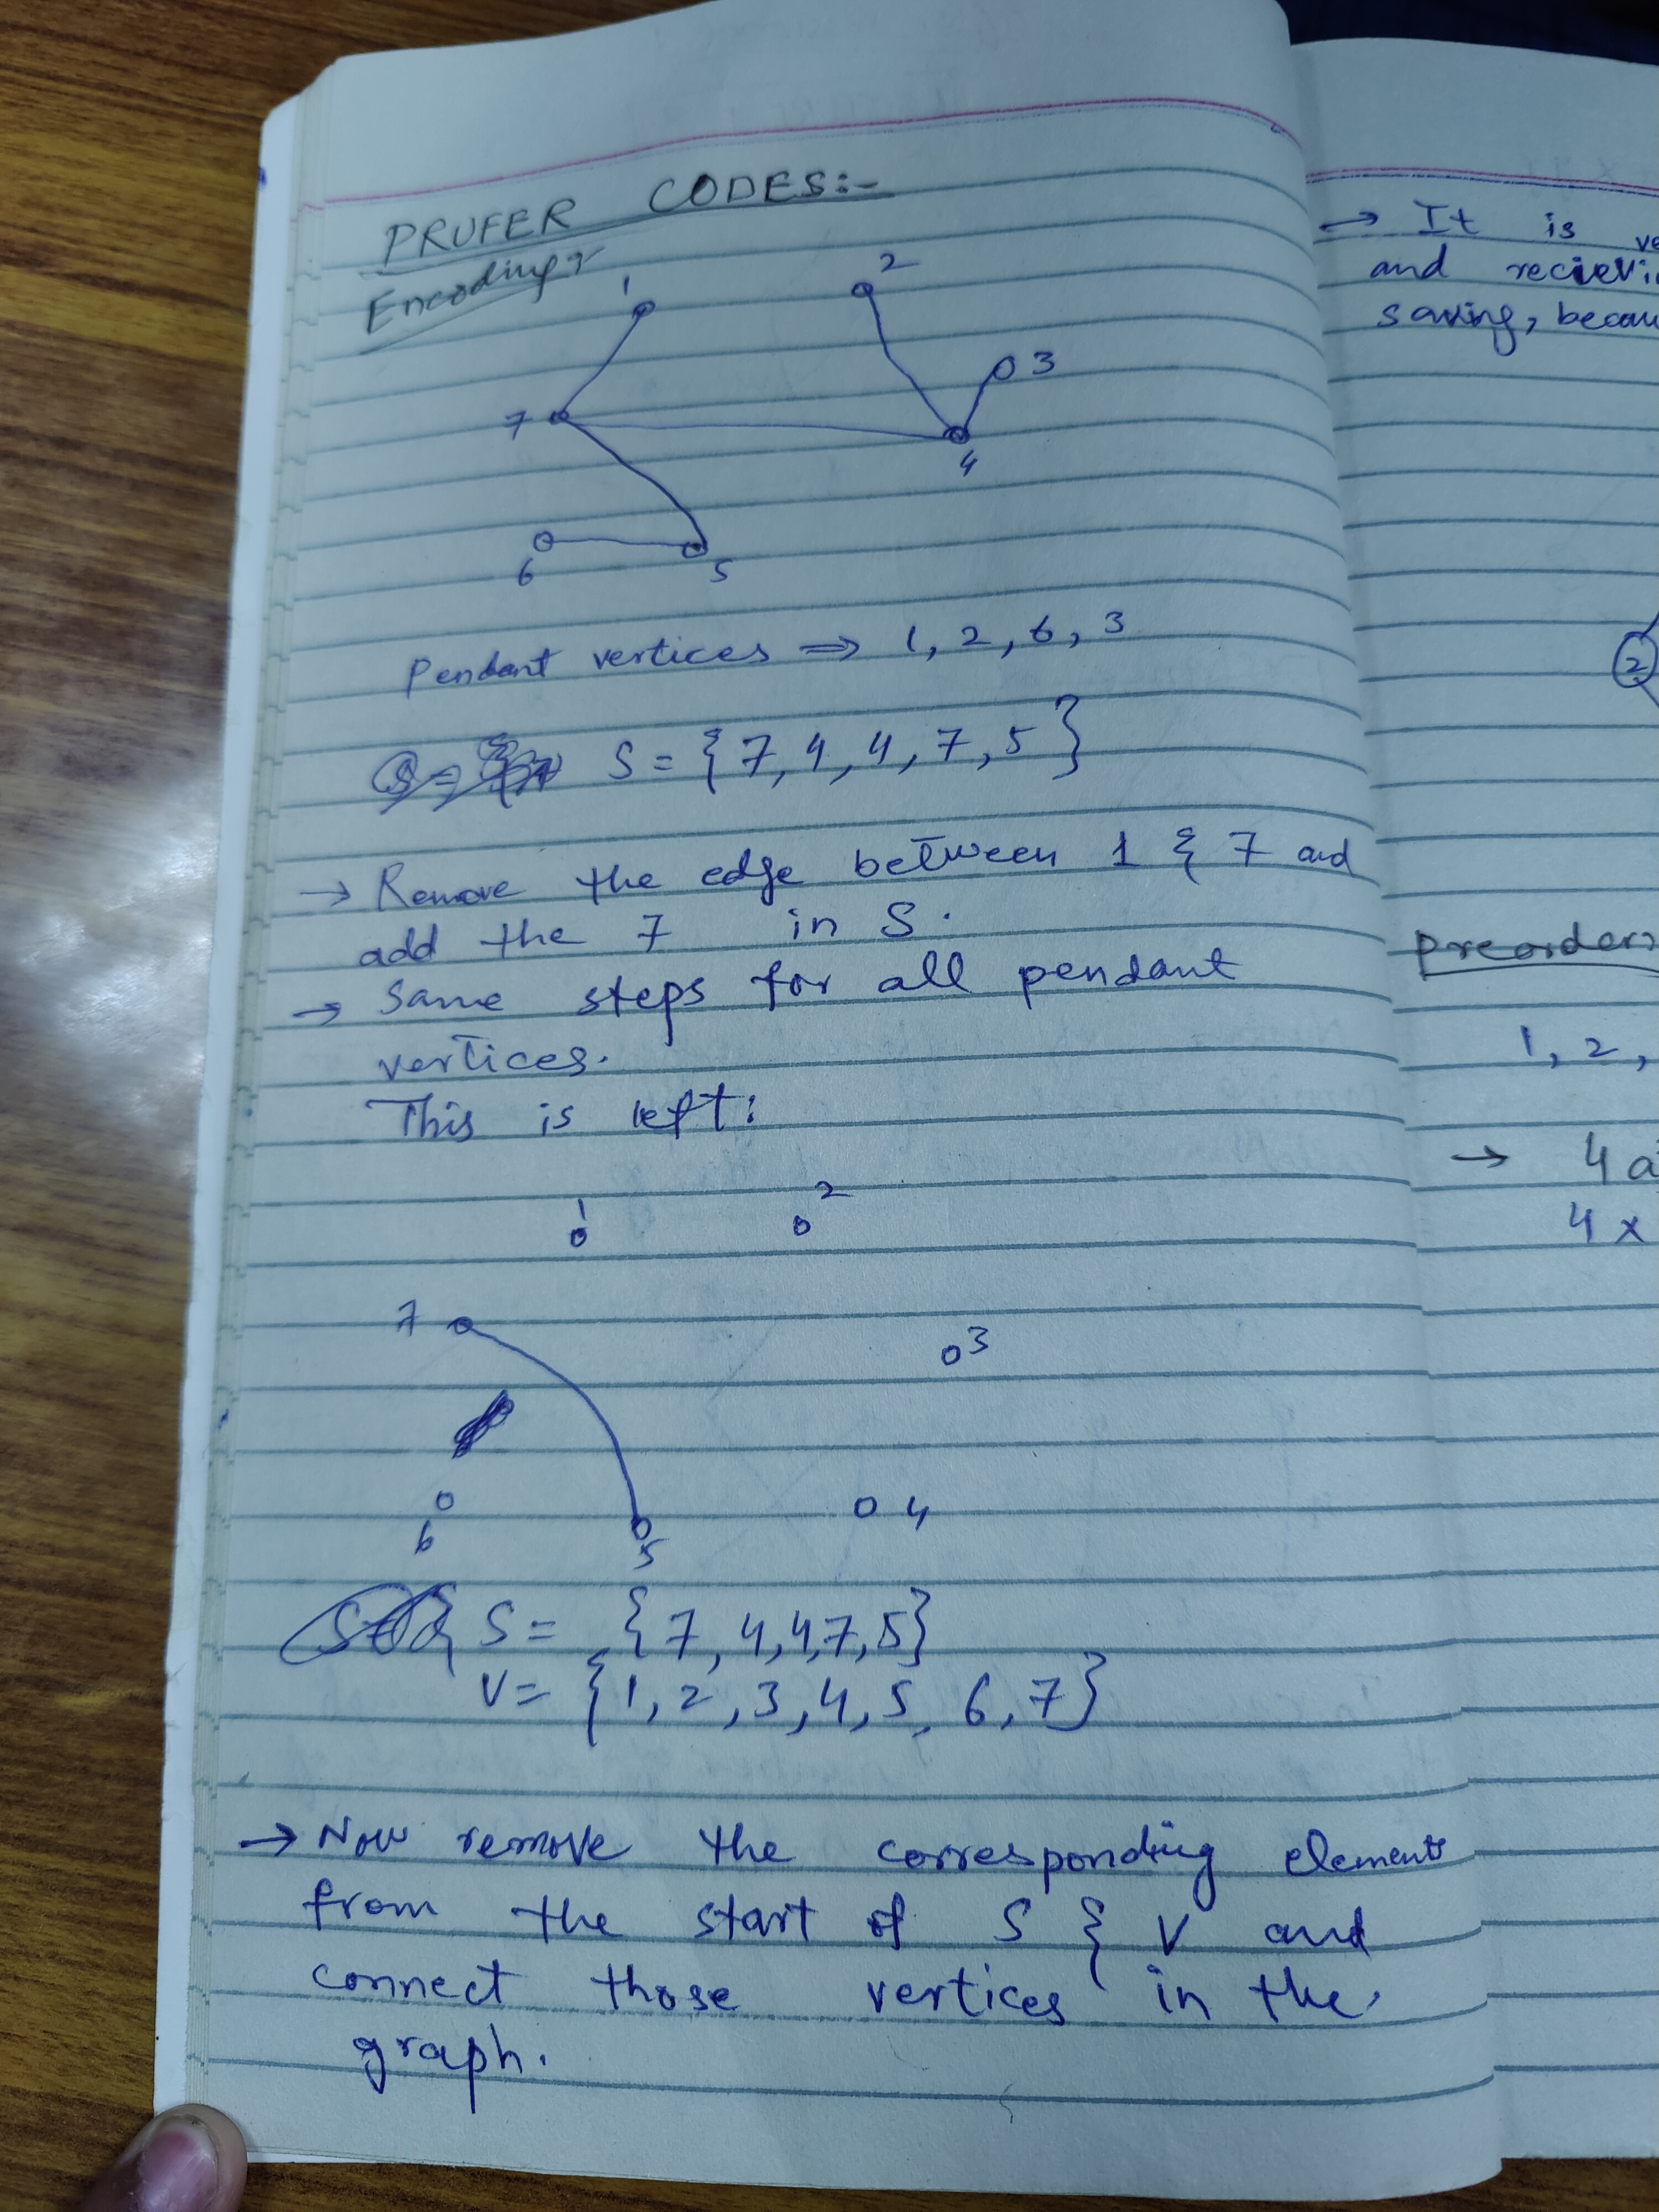 PRUFER CODES:-
Encoding
1
2
3
7
4
6
5
Pendant vertices ⇒ 1, 2, 6, 3
S = {7, 4, 4, 7, 5}
→ Remove the edge between 1 & 7 and
add the 7 in S.
→ Same steps for all pendant
vertices.
This is left:
1
2
7
3
6
5
4
S = {7, 4,4,7,5}
V = {1, 2, 3, 4, 5, 6, 7}
→ Now remove the corresponding element
from the start of S & V and
connect those vertices in the
graph.
→ It is ve
and recievi
saving, becau
2
preorder
1, 2,
→ 4 a
4 x